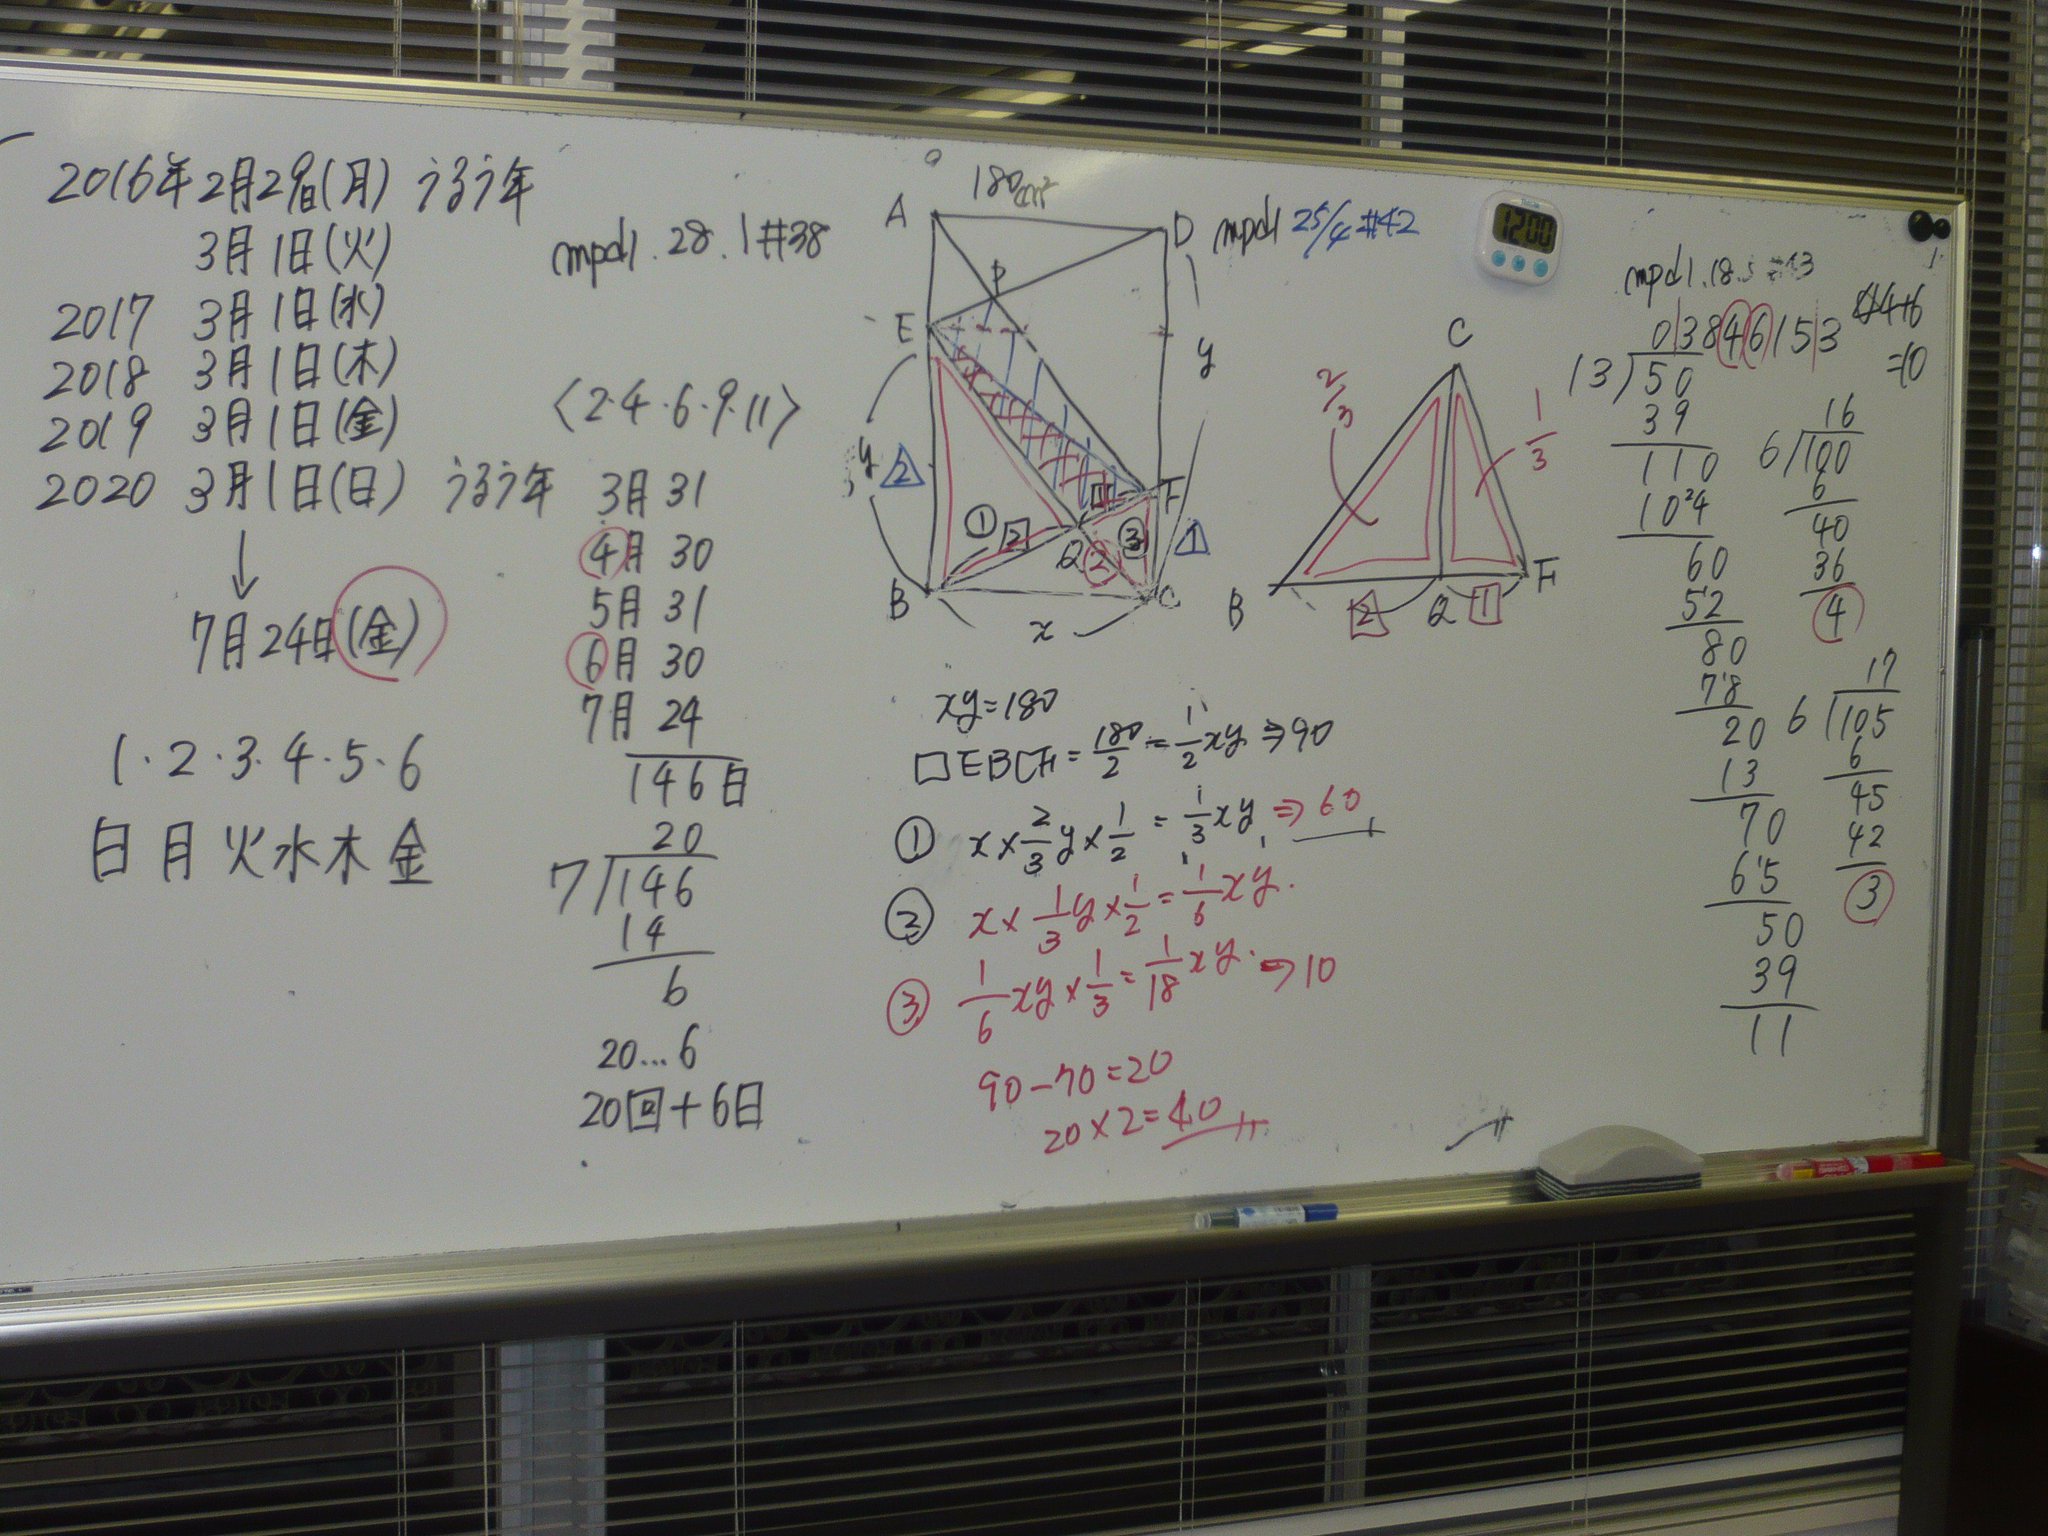 2016年2月29日(月) うるう年
3月1日(火)
2017 3月1日(水)
2018 3月1日(木)
2019 3月1日(金)
2020 3月1日(日) うるう年
↓
7月24日(金)
1・2・3・4・5・6
日月火水木金
mpd1.28.1#38
〈2・4・6・9・11〉
3月 31
4月 30
5月 31
6月 30
7月 24
146日
20
7)146
14
6
20…6
20回+6日
180cm²
A
D
mpd1 25/4 #42
P
E
y
y
2
F
1
① 2 Q ② ③ 1
B
C
x
C
2/3
1/3
B 2 Q 1 F
xy=180
□EBCF=180/2=1/2xy⇒90
① x×2/3y×1/2=1/3xy⇒60
② x×1/3y×1/2=1/6xy.
③ 1/6xy×1/3=1/18xy.⇒10
90-70=20
20×2=40
12:00
mpd1.18.
03846153
4+6
=10
13)50
39
110
104
60
52
80
78
20
13
70
65
50
39
11
16
6)100
6
40
36
4
17
6)105
6
45
42
3